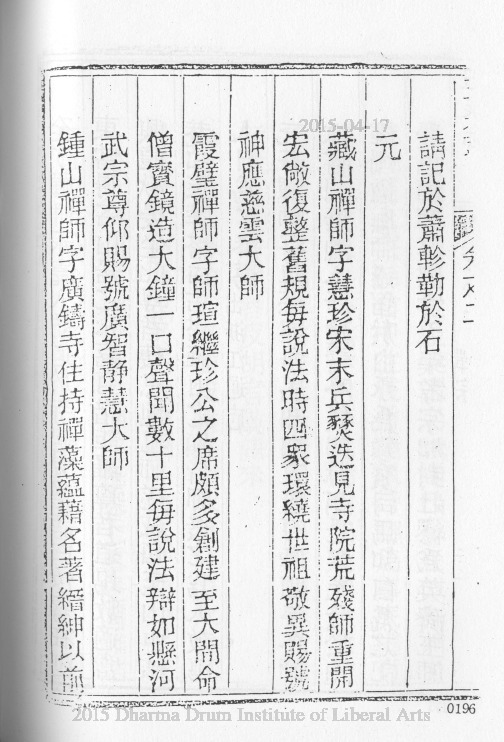 請記於蕭軫勒於石
元
藏山禪師字慧珍宋末兵燹迭見寺院荒殘師重開
宏敞復整舊規每說法時四衆環繞世祖敬異賜號
神應慈雲大師
霞壁禪師字師瑄繼珍公之席頗多創建至大間命
僧寶鏡造大鐘一口聲聞數十里每說法辯如懸河
武宗尊仰賜號廣智静慧大師
鍾山禪師字廣鑄寺住持禪藻蘊藉名著縉紳以前
2015-04-17
0196
2015 Dharma Drum Institute of Liberal Arts